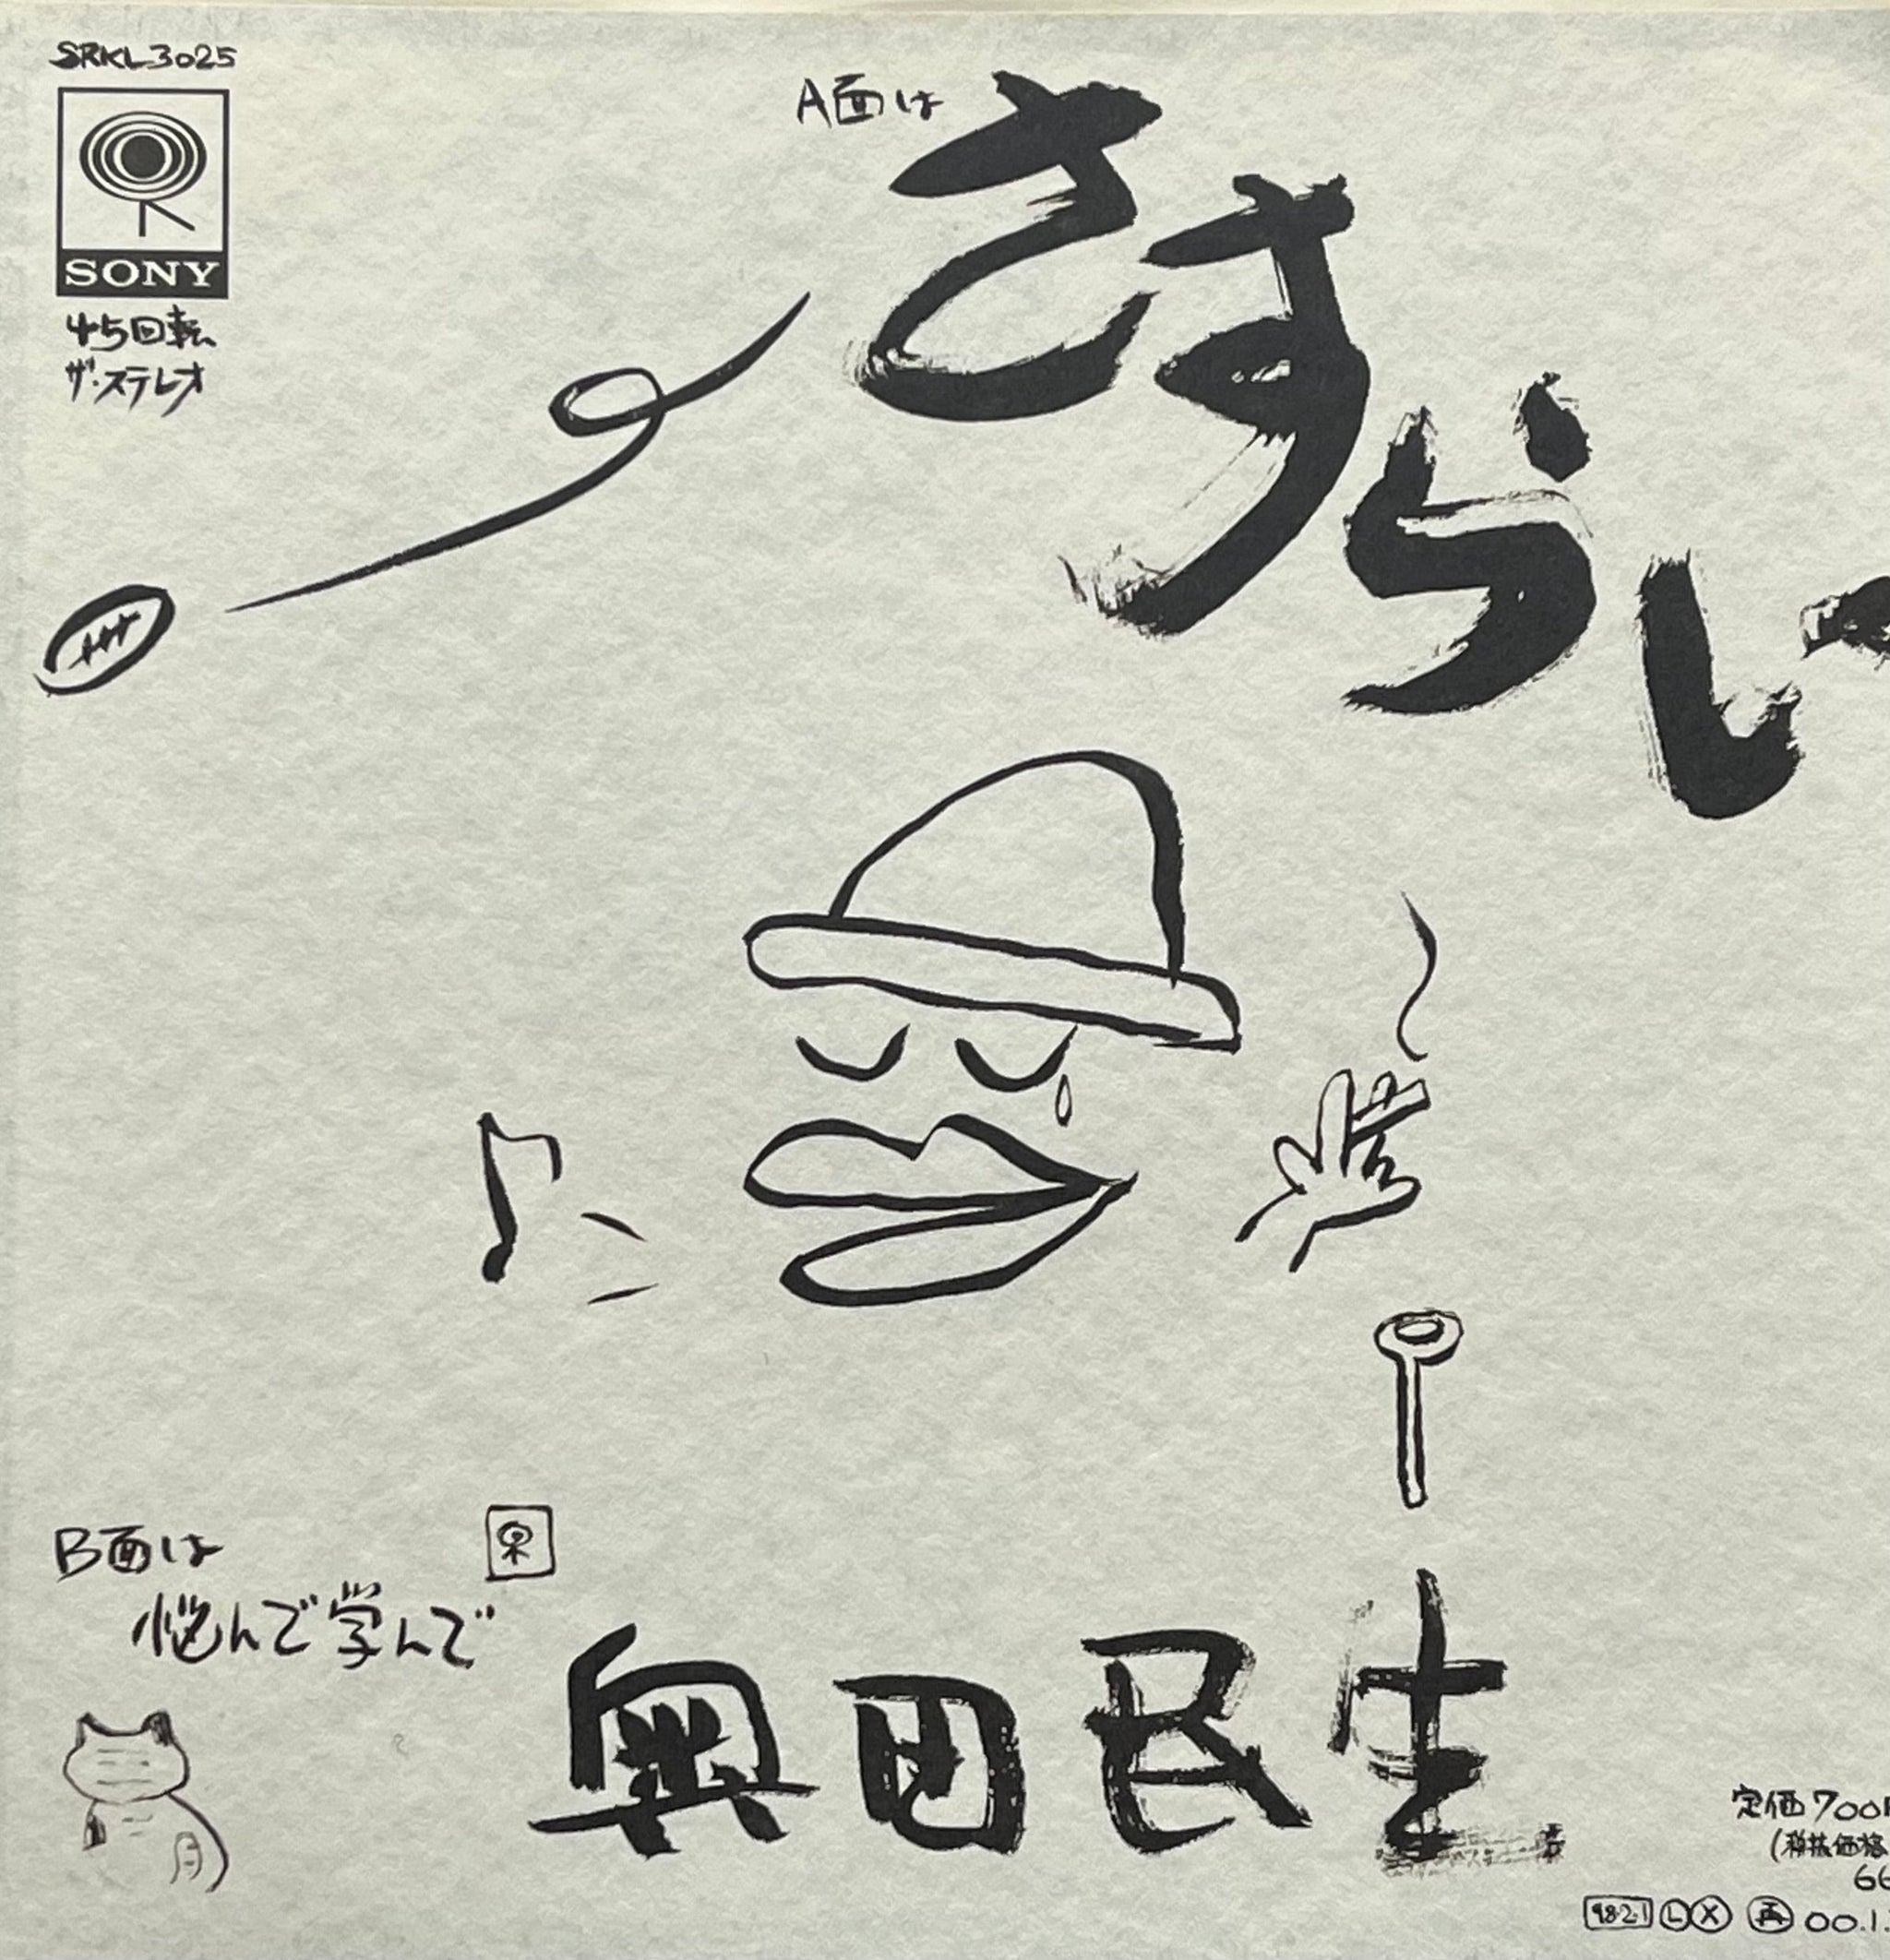 SRKL3025
SONY
45回転
ザ・ステレオ
A面は
さすらい
B面は
悩んで学んで
奥田民生
定価700
(税抜価格
66
98.2.1 L X 再 00.1.